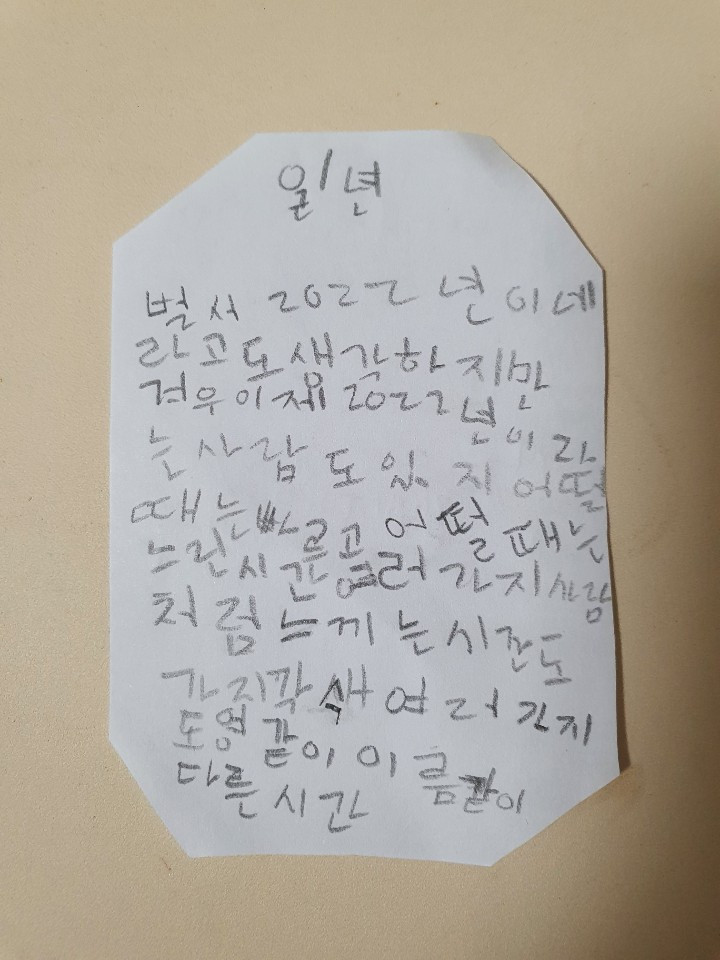 일년
벌서 2022년이네
라고도 생각하지만
겨우이제 2022년이라
는사람도 있지 어떨
때는빠르고 어떨때는
느린시간 여러가지사람
처럼 느끼는시간도
가지각색 여러가지
모양 같이 이름같이
다른시간